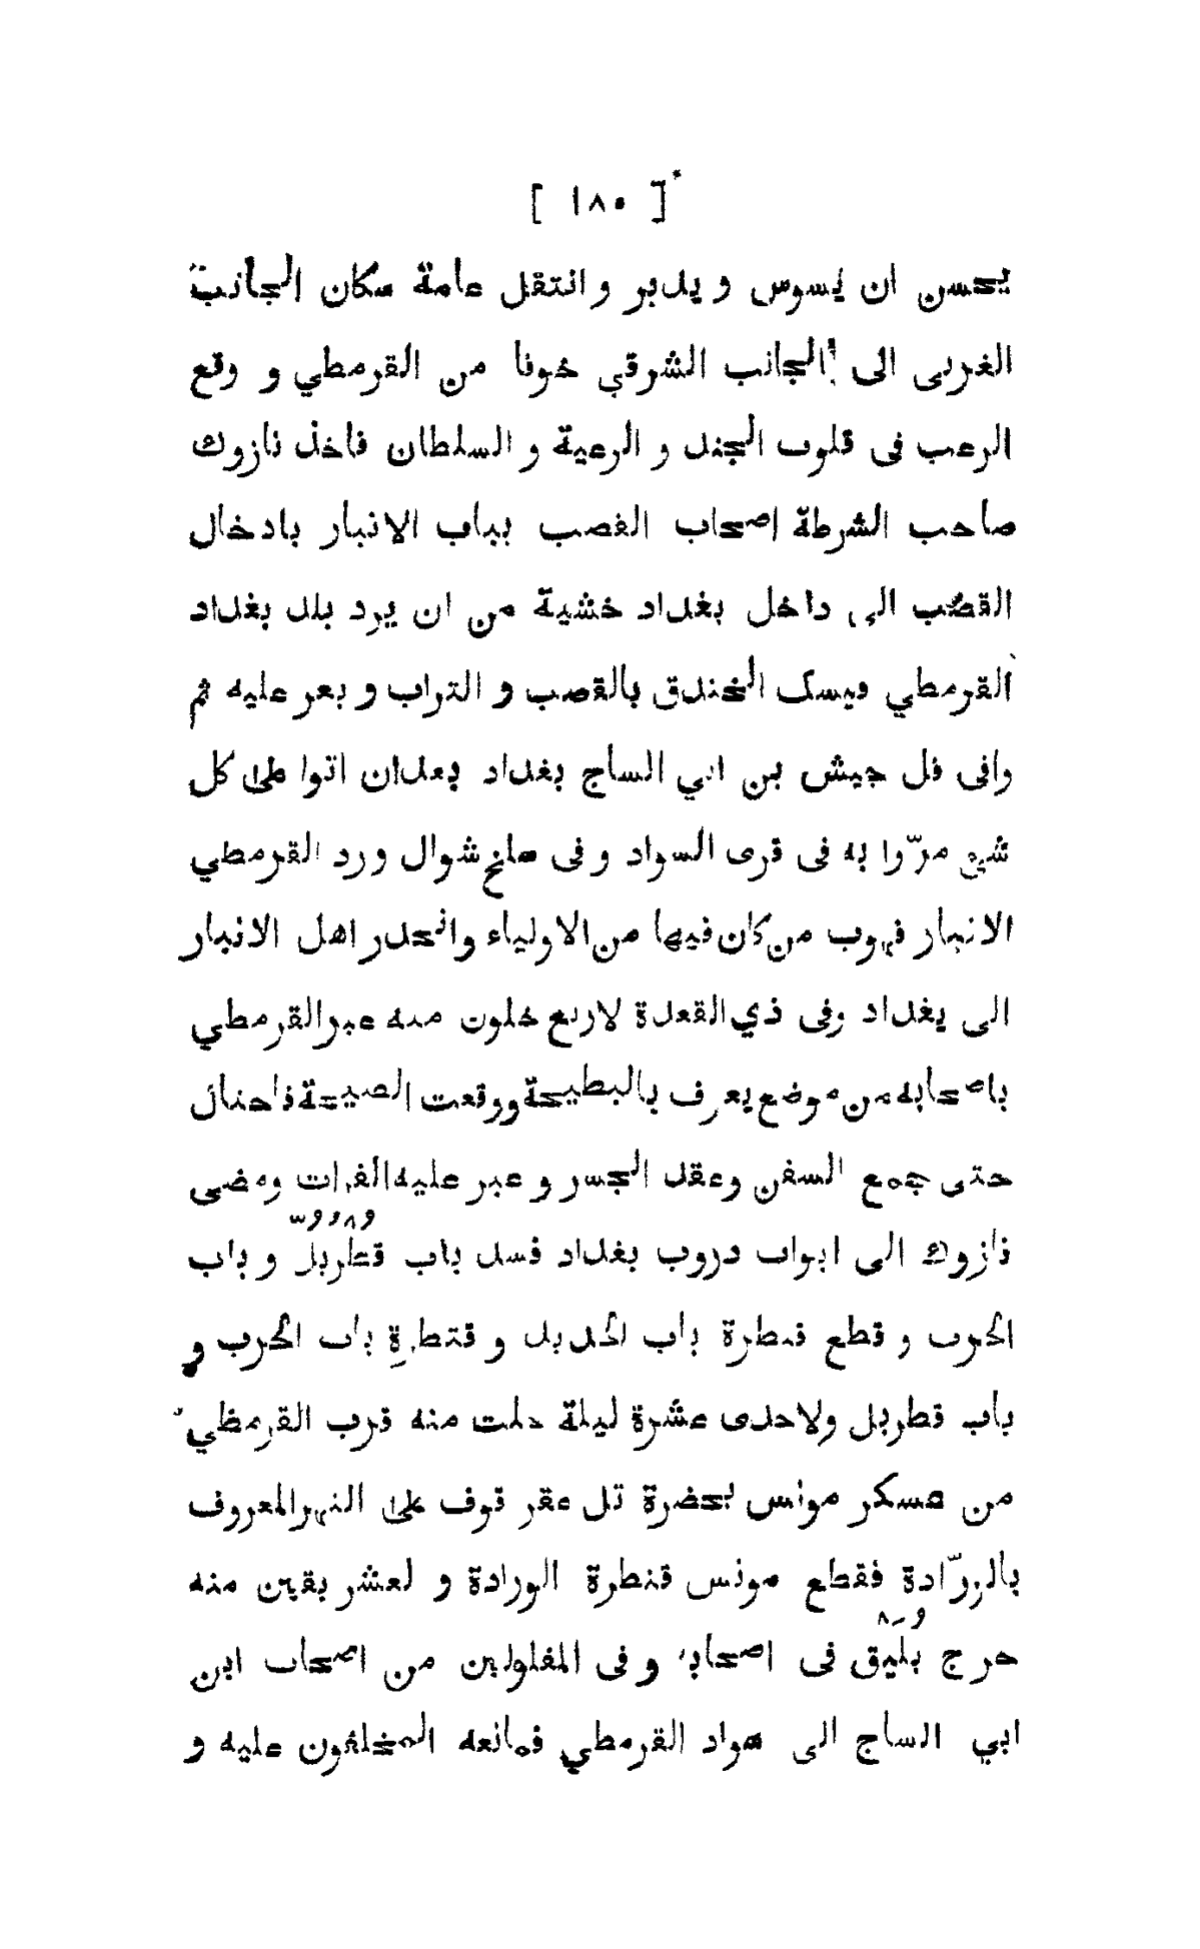 [ ١٨٠ ]
يحسن ان يسوس و يدبر و انتقل عامة سكان الجانب
الغربى الى الجانب الشرقي خوفا من القرمطي و وقع
الرعب فى قلوب الجند و الرعية و السلطان فاخذ نازوك
صاحب الشرطة اصحاب القصب بباب الانبار بادخال
القصب الى داخل بغداد خشية من ان يرد بلد بغداد
القرمطي ويسك الخندق بالقصب و التراب و يعر عليه ثم
وافى فل جيش بن ابي الساج بغداد بعدان اتوا على كل
شيئ مرّوا به فى قرى السواد و فى سلخ شوال ورد القرمطي
الانبار فهرب من كان فيها من الاولياء وانحدر اهل الانبار
الى بغداد وفى ذي القعدة لاربع خلون منه عبر القرمطي
باصحابه من موضع يعرف بالبطيحة ووقعت الصيحة فاحتال
حتى جمع السفن وعقد الجسر و عبر عليه الفرات ومضى
نازوك الى ابواب دروب بغداد فسد باب قُطْرُبُلّ و باب
الحرب و قطع قنطرة باب الحديد و قنطرة باب الحرب و
باب قطربل ولاحدى عشرة ليلة خلت منه قرب القرمطي
من عسكر مونس بحضرة تل عقر قوف على النهر المعروف
بالزوّادة فقطع مونس قنطرة الورادة و لعشر بقين منه
خرج بُلَيْق فى اصحابه و فى المفلولين من اصحاب ابن
ابي الساج الى سواد القرمطي فمانعه المخلفون عليه و